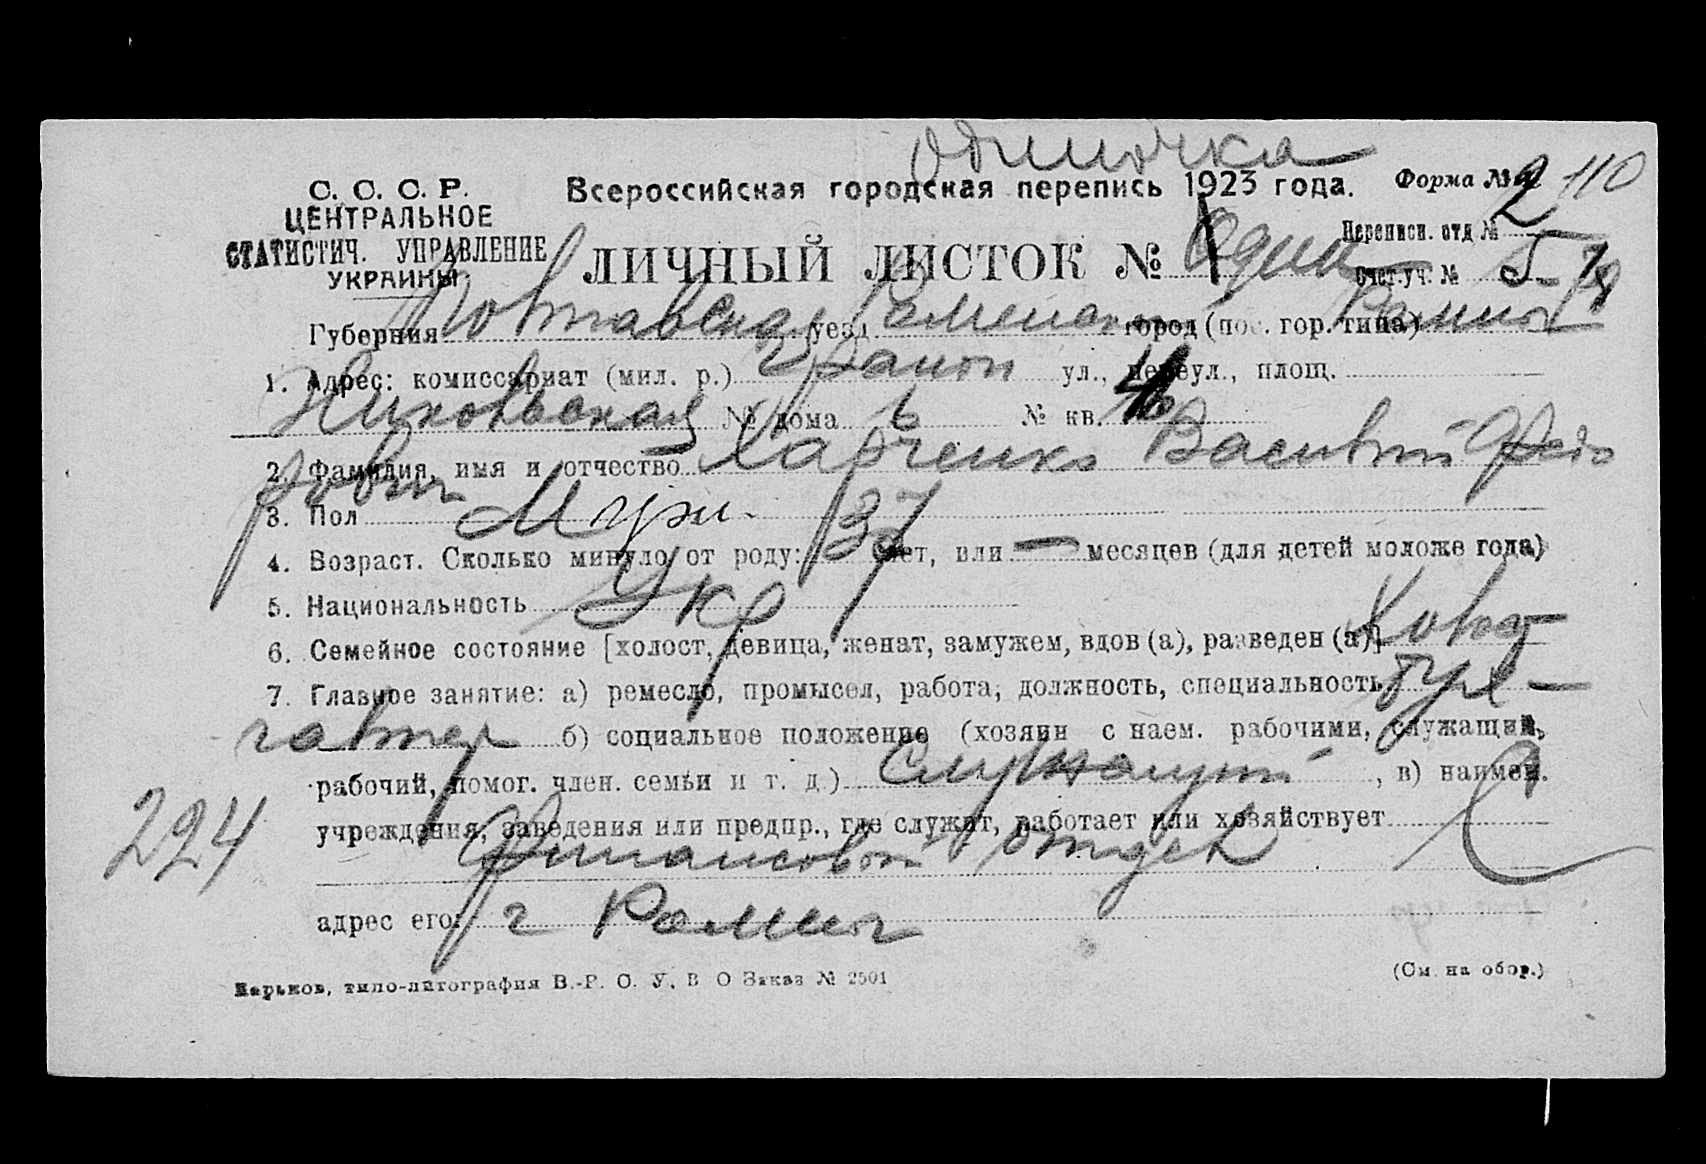 одиночка
С. С. С. Р.
ЦЕНТРАЛЬНОЕ
СТАТИСТИЧ. УПРАВЛЕНИЕ
УКРАИНЫ
Всероссийская городская перепись 1923 года. Форма № 2 110
ЛИЧНЫЙ ЛИСТОК № 1 Один
Переписи. отд №
Счет.уч. № 5
Губерния Полтавская уезд Роменск город (пос. гор. типа) Ромны
1. Адрес: комиссариат (мил. р.) район ул., переул., площ.
Никольская № дома 6 № кв.
2. Фамилия, имя и отчество Харченко Василий Федо
рович
3. Пол Муж.
4. Возраст. Сколько минуло от роду: 37 лет, или — месяцев (для детей моложе года)
5. Национальность Укр
6. Семейное состояние [холост, девица, женат, замужем, вдов (а), разведен (а)] Холост
7. Главное занятие: а) ремесло, промысел, работа, должность, специальность Бух-
галтер б) социальное положение (хозяин с наем. рабочими, служащий,
рабочий, помог. член. семьи и т. д.) Служащий , в) наимен.
224
учреждения, заведения или предпр., где служит, работает или хозяйствует
Финансовый отдел
адрес его: г Ромны
Харьков, типо-литография В.-Р. О. У. В О Заказ № 2501
(См. на обор.)